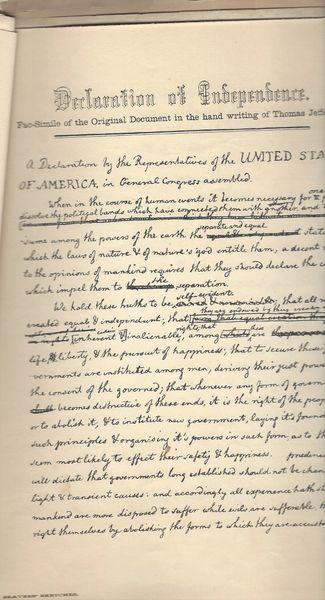 Declaration of Independence.
Fac-Simile of the Original Document in the hand writing of Thomas Jeffe
A Declaration by the Representatives of the UNITED STA
OF AMERICA, in General Congress assembled.
When in the course of human events it becomes necessary for
one
dissolve the political bands which have connected them with another, and
separate and equal
sume among the powers of the earth the
which the laws of nature & of nature's god entitle them, a decent
to the opinions of mankind requires that they should declare the
which impel them to the separation.
We hold these truths to be self-evident; that all
they are endowed by their
created equal & independent; that
rights; that these
inherent & inalienable, among are
life, & liberty, & the pursuit of happiness; that to secure these
vernments are instituted among men, deriving their just pow
the consent of the governed; that whenever any form of govern
becomes destructive of these ends, it is the right of the peop
or to abolish it, & to institute new government, laying it's founda
such principles & organising it's powers in such form, as to th
seem most likely to effect their safety & happiness. prudence
will dictate that governments long established should not be chan
light & transient causes: and accordingly all experience hath sh
mankind are more disposed to suffer while evils are sufferable, th
right themselves by abolishing the forms to which they are accusto
SKETCHES.